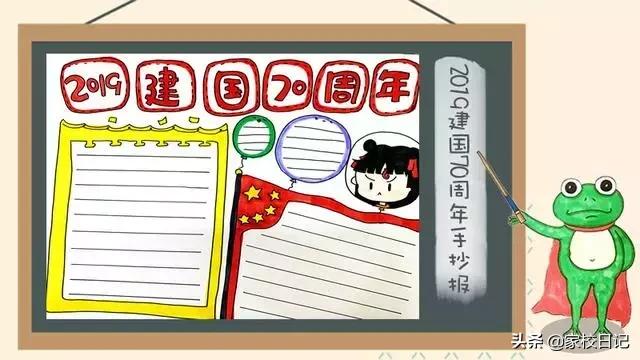 2019建国70周年
2019建国70周年手抄报
头条 @家校日记